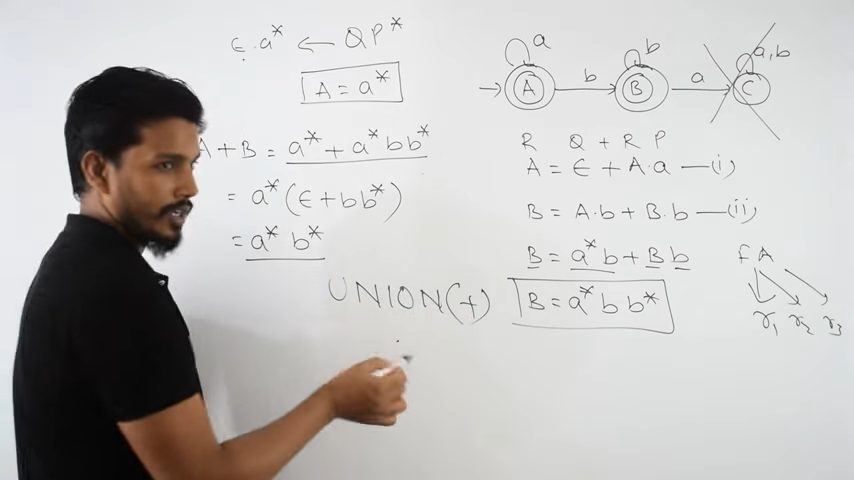 ϵ.a* ← QP*
A = a*
A+B = a* + a*bb*
= a*(ϵ+bb*)
= a*b*
UNION(+)
a b a,b
A b B a C
R Q + R P
A = ϵ + A.a —(i)
B = A.b + B.b —(ii)
B = a*b + Bb
B = a*bb*
FA
r₁ r₂ r₃